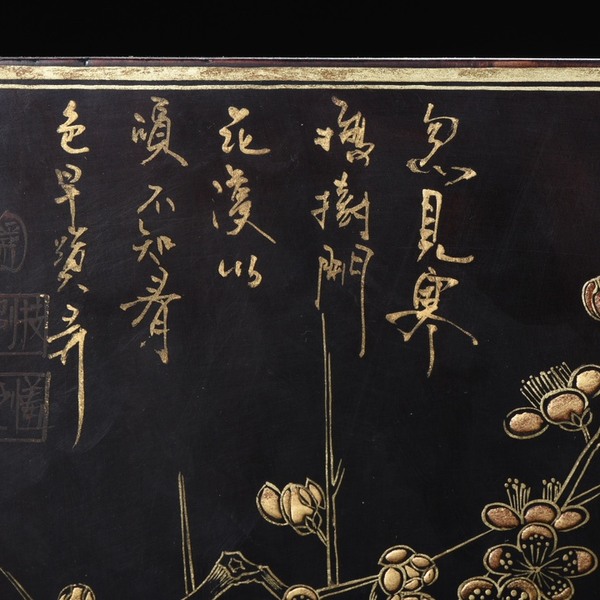 忽見寒
梅樹開
花漢水
濱不知春
色早疑弄